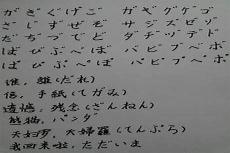 がぎぐげご ガギグゲゴ
ざじずぜぞ ザジズゼゾ
だぢづでど ダヂヅデド
ばびぶべぼ バビブベボ
ぱぴぷぺぽ パピプペポ
誰、誰(だれ)
信、手紙(てがみ)
遺憾、残念(ざんねん)
熊猫、パンダ
天妇罗、天婦羅(てんぷら)
我回来啦、ただいま